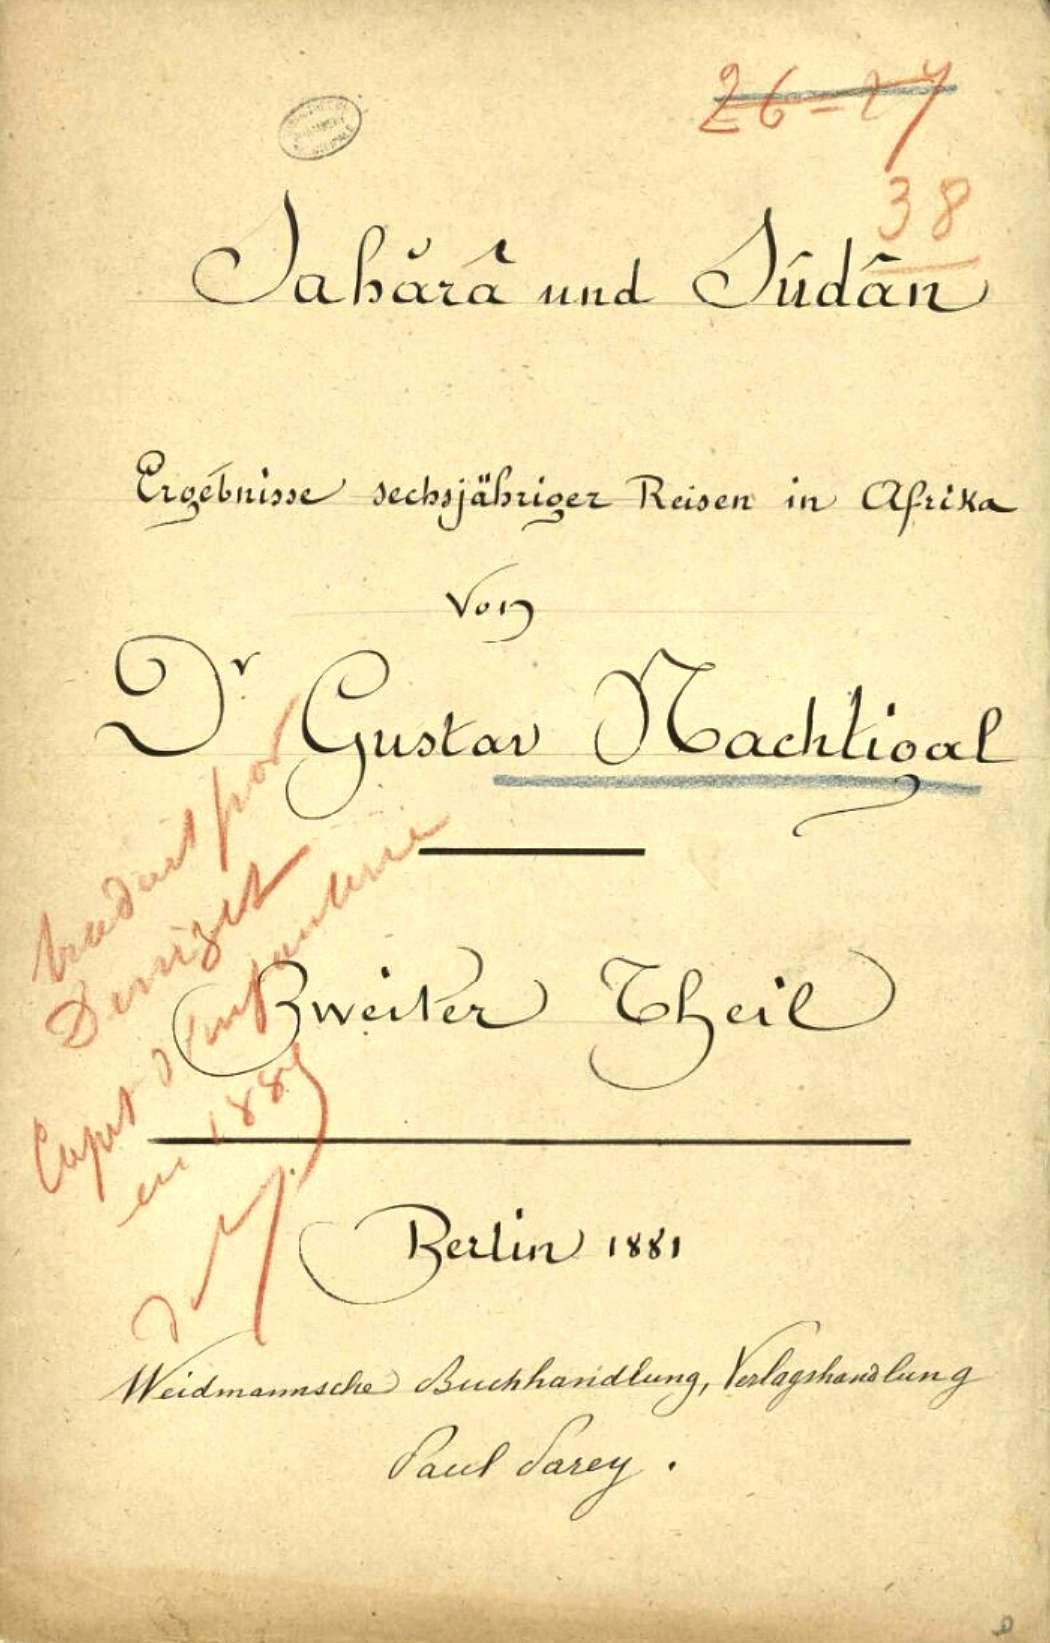 26-27
38
Sahărâ und Sûdân
Ergebnisse sechsjähriger Reisen in Afrika
von
Dr Gustav Nachtigal
traduit par
Denizet
Capit d'infanterie
en 188
Zweiter Theil
Berlin 1881
Weidmannsche Buchhandlung, Verlagshandlung
Paul Parey.